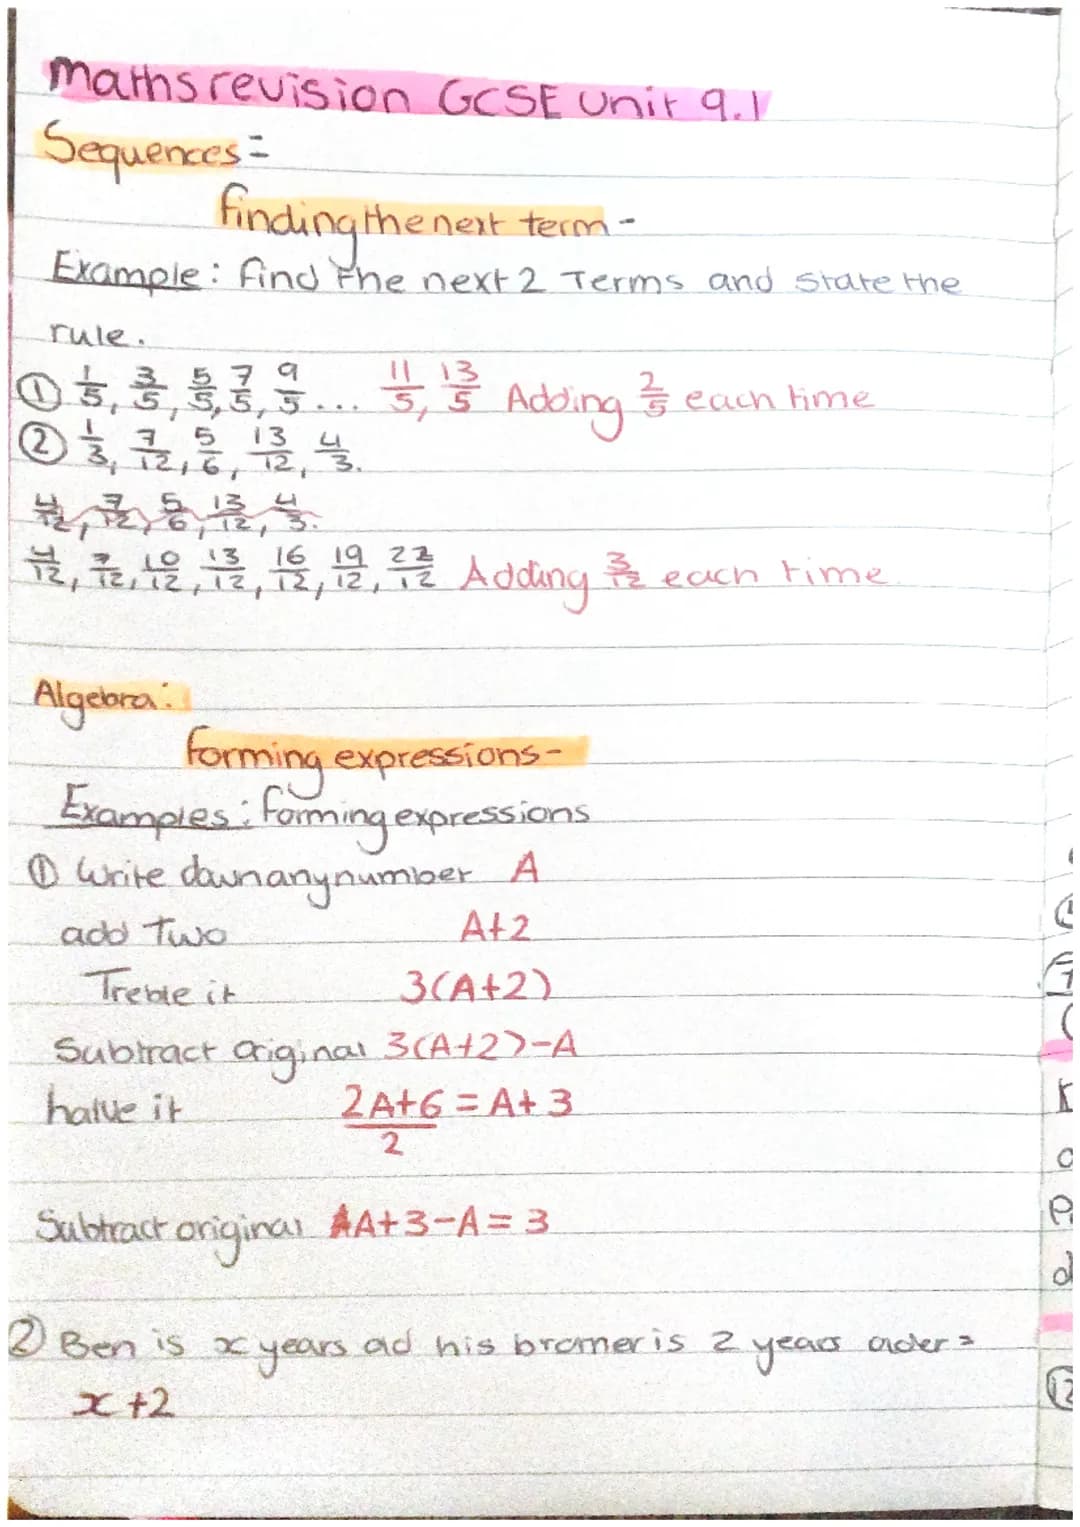 Maths revision GCSE Unit 9.1
Sequences =
finding the next term -
Example: find the next 2 Terms and state the
rule.
① 1/5, 3/5, 5/5, 7/5, 9/5 ... 11/5, 13/5 Adding 2/5 each time
② 1/3, 7/12, 5/6, 13/12, 4/3.
4/12, 7/12, 5/6, 13/12, 4/3.
4/12, 7/12, 10/12, 13/12, 16/12, 19/12, 22/12 Adding 3/12 each time
Algebra:
forming expressions -
Examples: forming expressions
① Write down any number A
add Two A+2
Treble it 3(A+2)
Subtract original 3(A+2)-A
halve it 2A+6/2 = A+3
Subtract original A+3-A = 3
② Ben is x years old his brother is 2 years older =
x+2